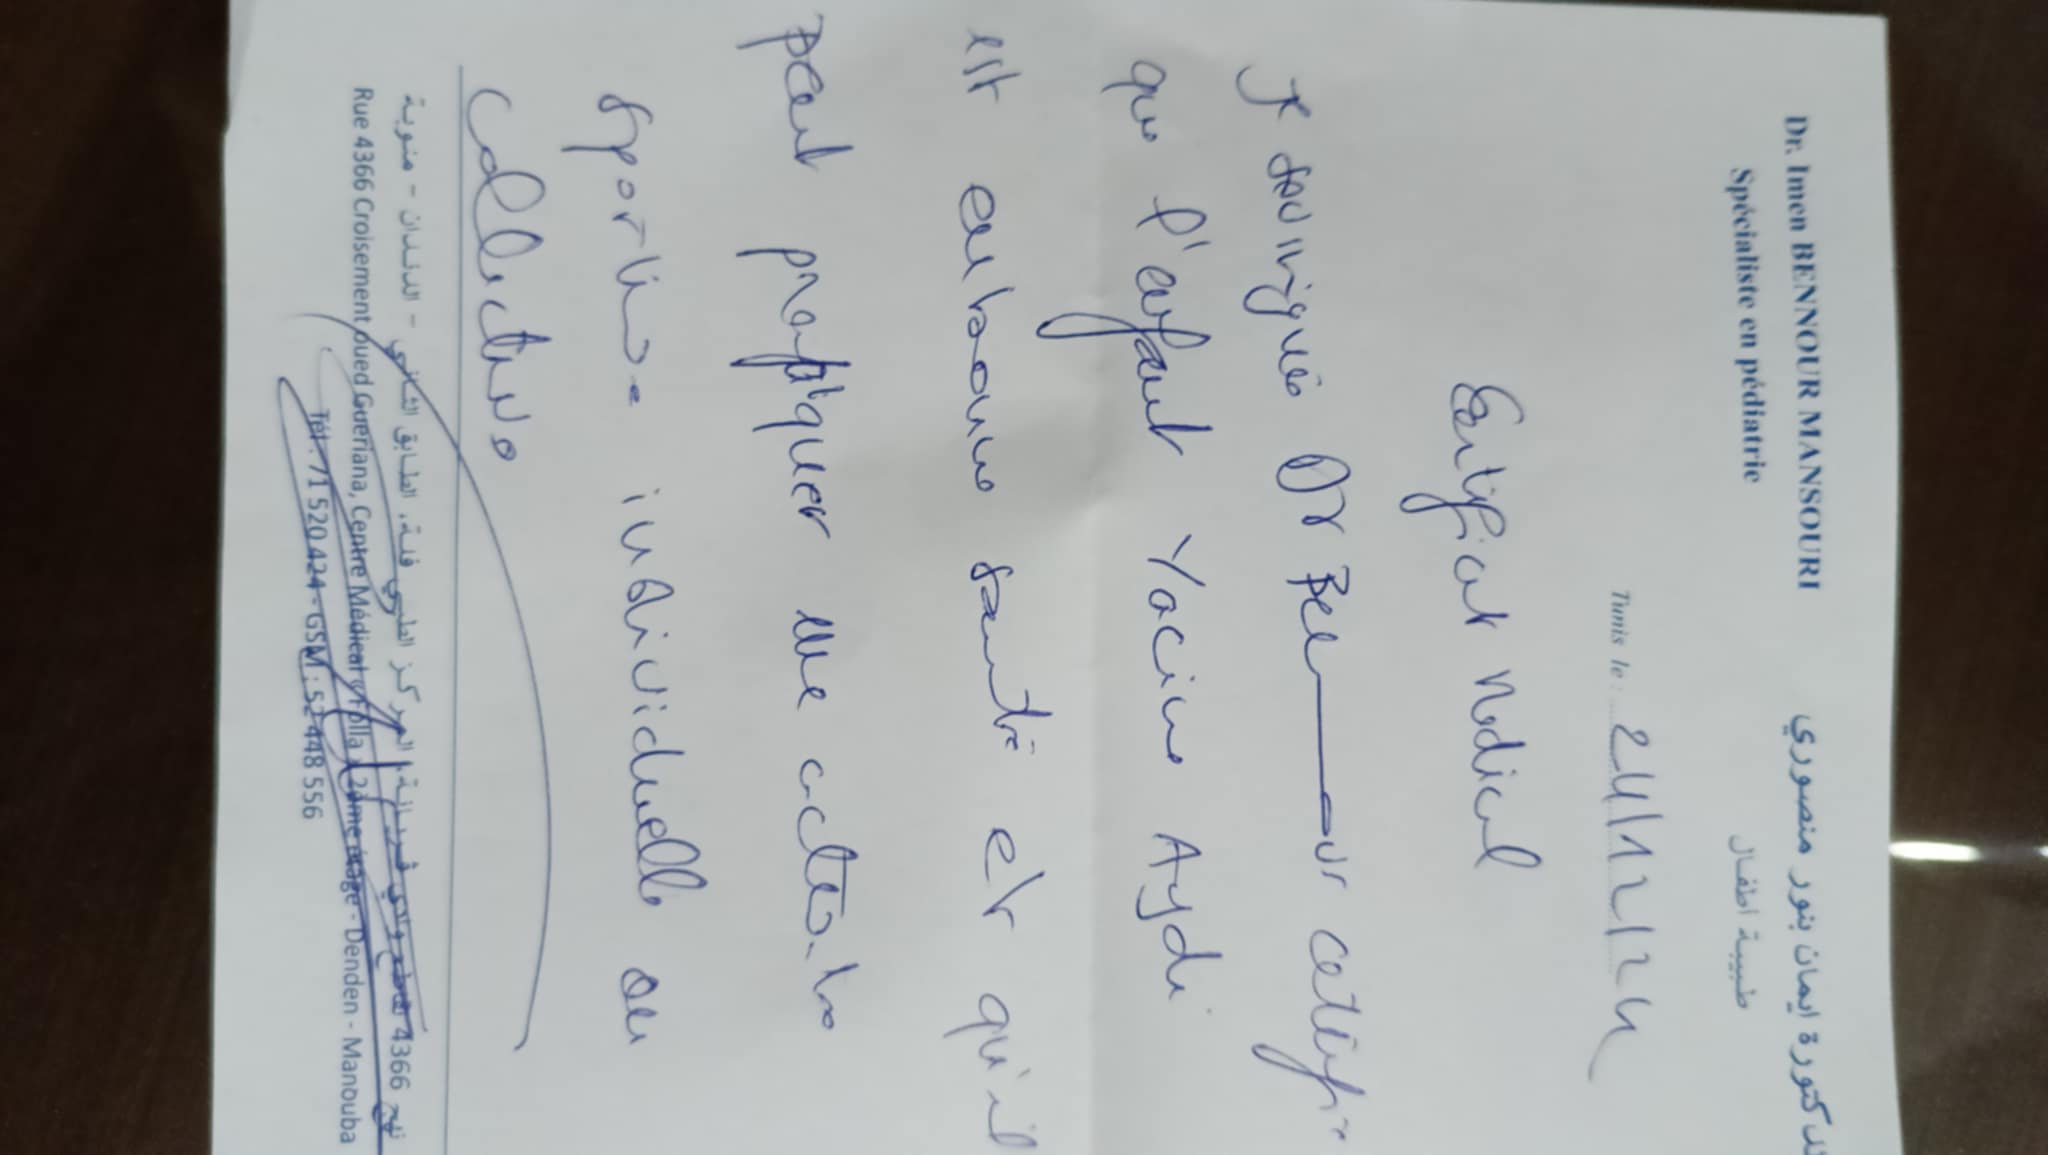 Dr. Imen BENNOUR MANSOURI
Spécialiste en pédiatrie
الدكتورة ايمان بنور منصوري
طبيبة اطفال
Tunis le : 24/12/24
Certificat Médical
Je soussignée Dr Bennour certifie
que l'enfant Yacine Aydi
est en bonne santé et qu'il
peut pratiquer une activité
sportive individuelle ou
collective
نهج 4366 تقاطع وادي قريانة، المركز الطبي فلة، الطابق الثاني - الدندان - منوبة
Rue 4366 Croisement oued Gueriana, Centre Médical Folla, 2ème étage - Denden - Manouba
Tél : 71 520 424 - GSM : 52 448 556